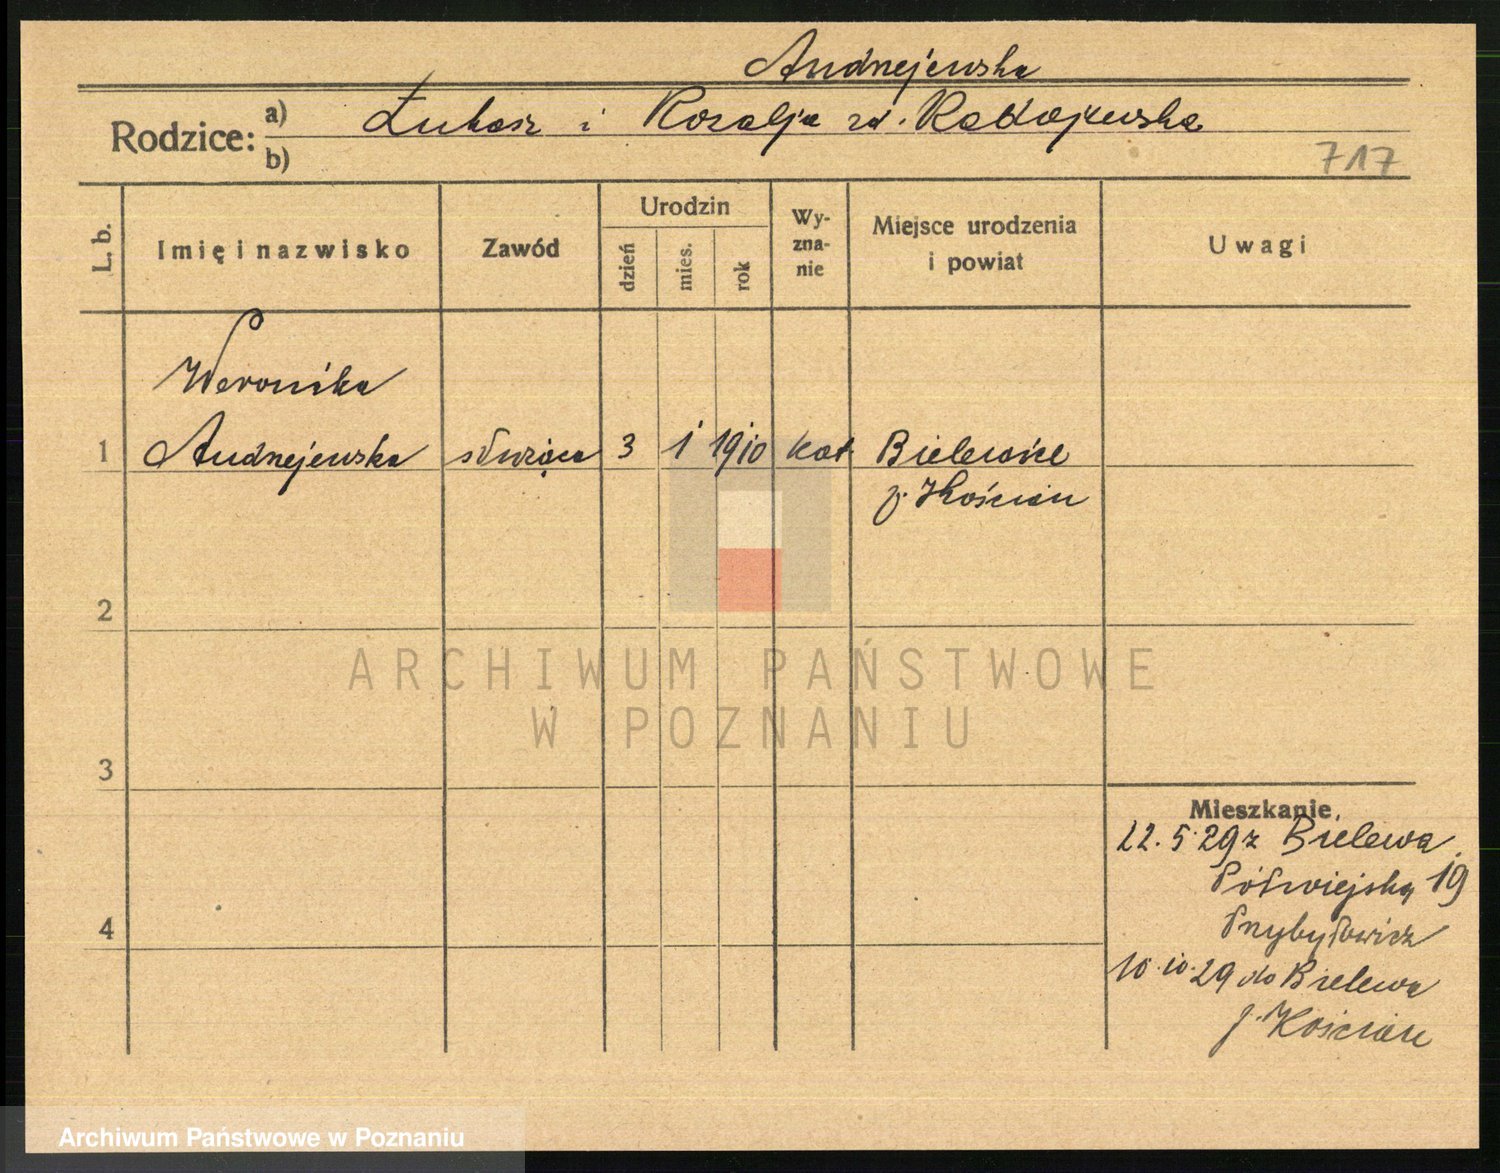 Andrzejewska
Rodzice: a) Łukasz i Rozalja zd. Ratajewska
b)
717
L. b.
Imię i nazwisko
Zawód
Urodzin
dzień
mies.
rok
Wy-
zna-
nie
Miejsce urodzenia
i powiat
Uwagi
Weronika
1 Andrzejewska służąca 3 1 1910 kat. Bielewice
p. Kościan
2
3
4
Mieszkanie
22.5.29 z Bielewa
Półwiejska 19
Przybyłowicz
10.10.29 do Bielewa
p. Kościan
ARCHIWUM PAŃSTWOWE
W POZNANIU
Archiwum Państwowe w Poznaniu